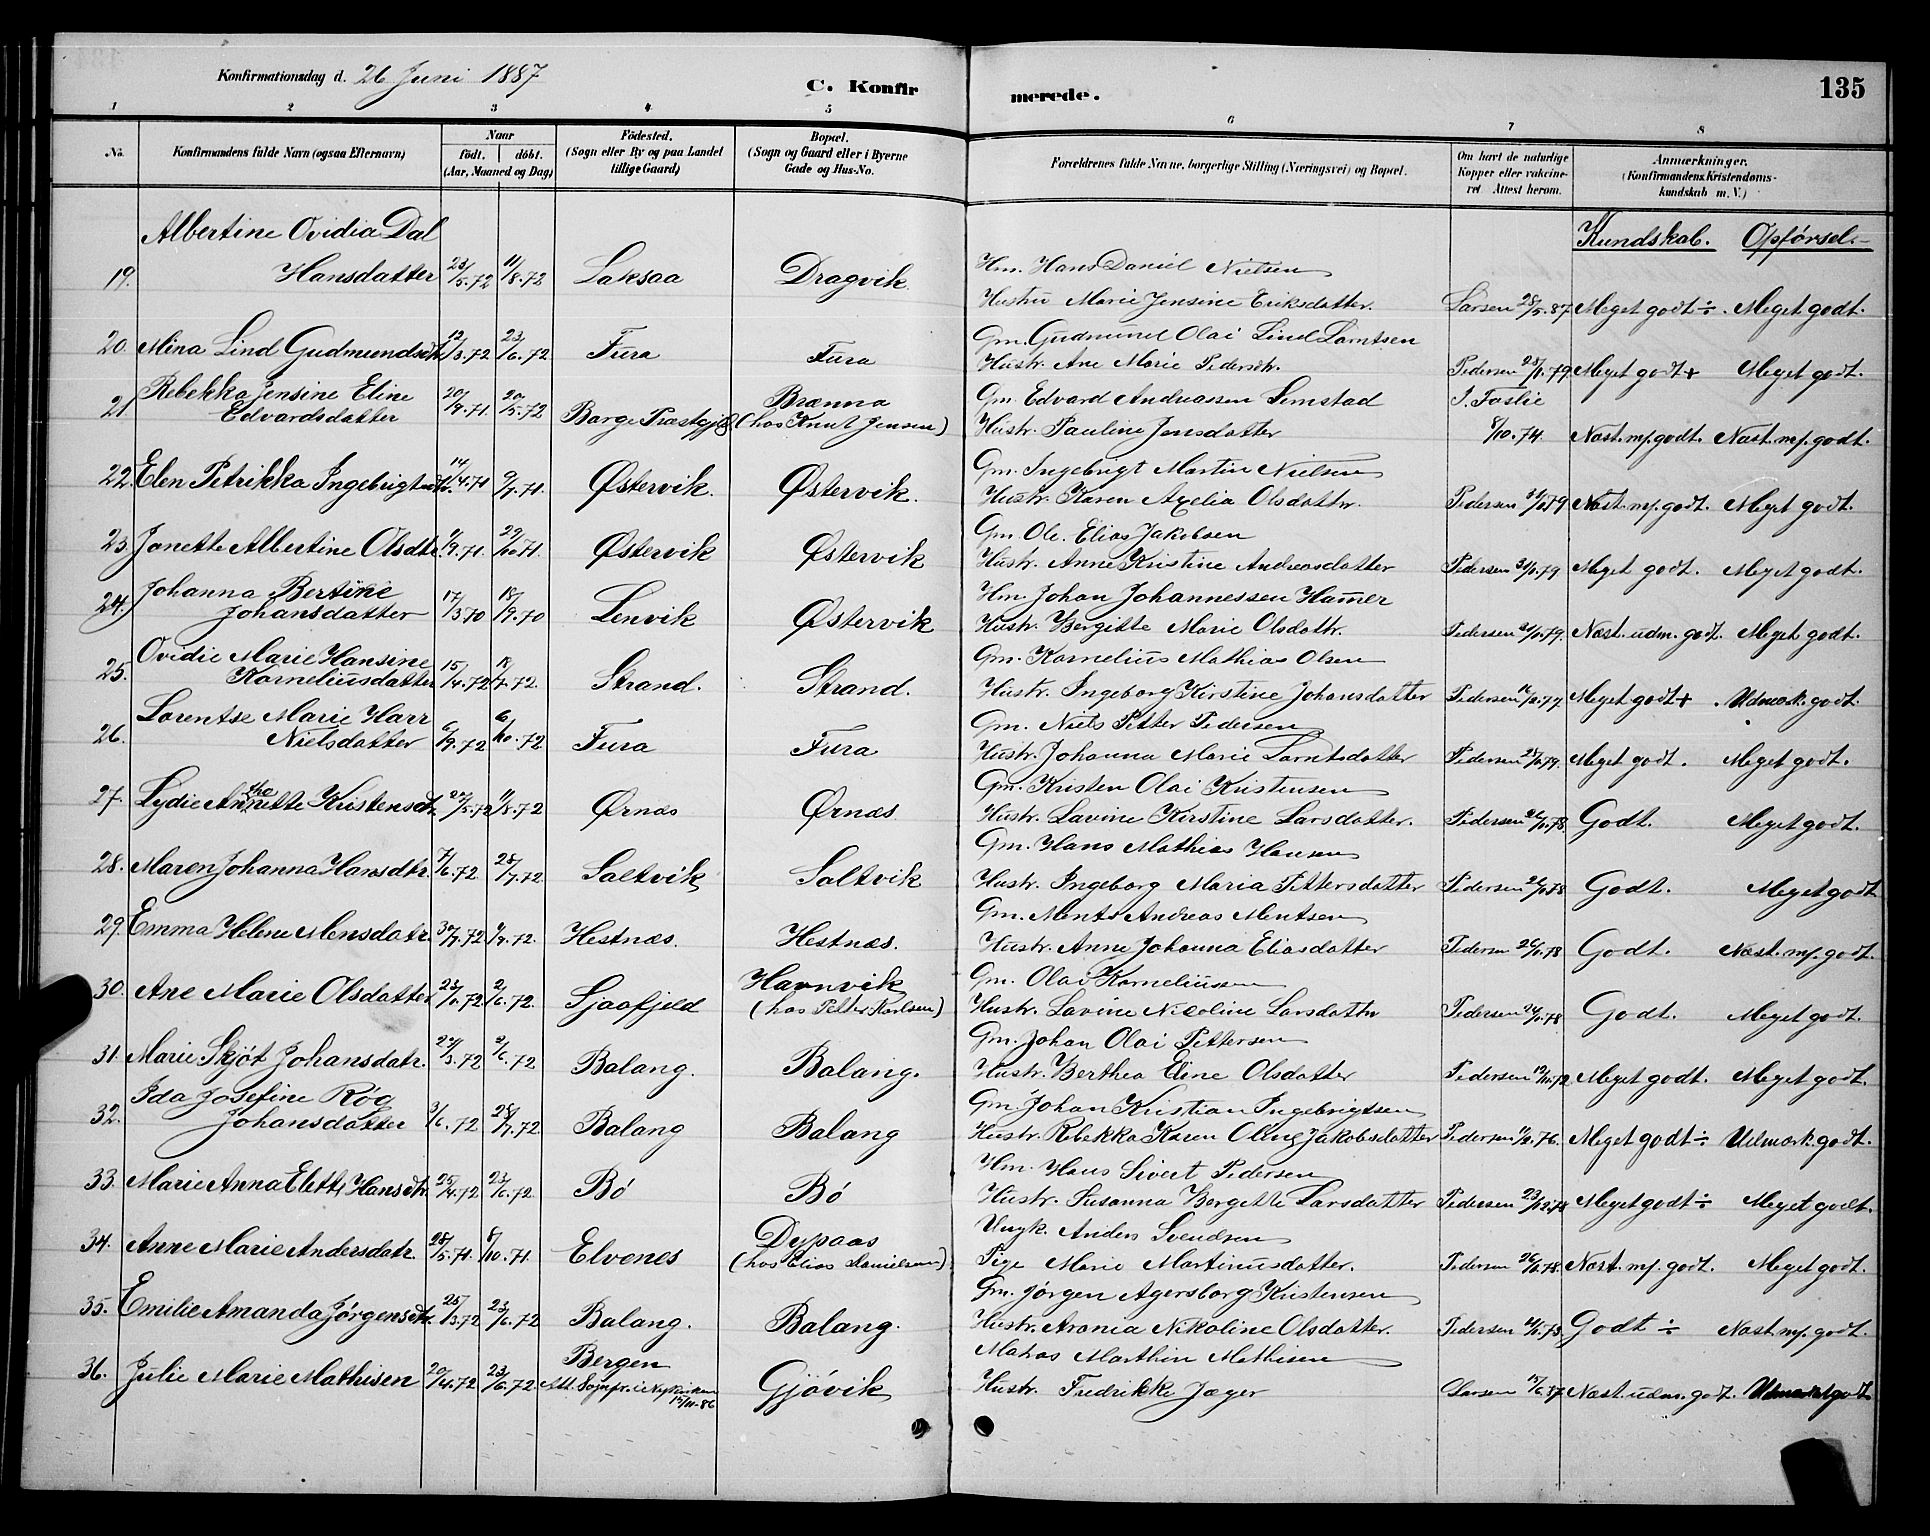 Konfirmationsdag d. 26 Juni 1887
C. Konfirmerede.
135
1 2 3 4 5 6 7 8
No.
Konfirmandens fulde Navn (ogsaa Efternavn)
Naar
födt. döbt.
(Aar, Maaned og Dag)
Födested.
(Sogn eller By og paa Landet
tillige Gaard)
Bopæl.
(Sogn og Gaard eller i Byerne
Gade og Hus-No.
Forældrenes fulde Navne, borgerlige Stilling (Næringsvei) og Bopæl.
Om havt de naturlige
Kopper eller vakcine-
ret Attest herom.
Anmærkninger.
(Konfirmandens Kristendoms-
kundskab m. V.)
Kundskab. Opførsel.
Albertine Ovidia Dal
19. Hansdatter 23/5.72 11/8.72 Laksaa Dragvik Hm. Hans Daniel Nielsen
Hustru Marie Jensine Eriksdatter. Larsen 28/5.87 Meget godt ÷. Meget godt.
20. Mina Lind Gudmundsdtr. 12/3.72 23/6.72 Fura Fura Gm. Gudmund Olai Lind Larntsen
Hustr. Ane Marie Pedersdtr. Pedersen 28/11.79 Meget godt + Meget godt.
Rebekka Jensine Eline
21 Edvardsdatter 20/9.71. 20/5.72 Borge Præstegjæld Brænna (hos Knut Jensen) Gm. Edvard Andreassen Simstad
Hustr. Pauline Jensdatter J. Foslie 8/10.74. Næst. m/. godt. Næst. m/. godt.
22. Elen Petrikka Ingebrigtsdtr. 14/4.71 9/7.71. Østervik. Østervik. Gm. Ingebrigt Martin Nielsen
Hustr. Karen Axelia Olsdatter. Pedersen Næst. m/. godt. Meget godt.
23. Janette Albertine Olsdtr. 9/9.71. 29/10.71. Østervik Østervik Gm. Ole Elias Jakobsen
Hustr. Anne Kristine Andreasdatter Pedersen Meget godt. Meget godt.
Johanna Bertine
24. Johansdatter 17/3 70 18/9.70 Lenvik Østervik Hm. Johan Johannessen Hamer
Hustr. Bergitte Marie Olsdatr. Pedersen Næst. udm. godt. Meget godt.
Ovidie Marie Hansine
25. Korneliusdatter 15/4.72 Strand. Strand. Gm. Kornelius Mathias Olsen
Hustr. Ingeborg Kirstine Johansdatter Pedersen Meget godt + Udmærk. godt.
Lorentse Marie Harr
26. Nielsdatter 6/9.72 6/10.72 Fura Fura Gm. Niels Petter Pedersen
Hustr. Johanna Marie Larntsdatter Pedersen Meget godt. Meget godt.
27. Lydie Annethe Kristensdtr. 27/5.72 11/8.72 Ørnæs Ørnæs. Gm. Kristen Olai Kristensen
Hustr. Lavine Kirstine Larsdatter. Pedersen Godt. Meget godt.
28. Maren Johanna Hansdtr. 7/6.72 28/7.72 Saltvik Saltvik Gm. Hans Mathias Hansen
Hustr. Ingeborg Maria Pettersdatter Pedersen Godt. Meget godt
29. Emma Helene Mensdatr. Hestnæs. Hestnæs. Gm. Ments Andreas Mentsen
Hustr. Anne Johanna Eliasdatter Pedersen Godt. Næst. m/. godt.
30. Ane Marie Olsdatter 2/6.72. Sjaafjeld Havnvik (hos Petter Karlsen) Gm. Olai Korneliussen
Hustr. Lavine Nicoline Larsdattr Pedersen Godt. Meget godt.
31. Marie Skjøt Johansdatr. 2/6.72 Balang. Balang. Gm. Johan Olai Pettersen
Hustr. Berthea Eline Olsdatter Pedersen Meget godt. Meget godt.
Ida Josefine Røg
32. Johansdatter 3/6.72 28/7.72. Balang Balang Gm. Johan Kristian Ingebrigtsen
Hustr. Rebekka Karen Oline Jakobsdatter Pedersen Meget godt ÷ Udmærk. godt.
33. Marie Anna Elett Hansdtr. 25/4.72 23/6.72. Bö Bö Hm. Hans Sivert Pedersen
Hustr. Susanna Bergette Larsdatter Pedersen 23/12.78 Meget godt ÷ Meget godt.
34. Anne Marie Andersdatr. 28/5.71. 8/10.71. Elvenes Dypaas (hos Elias Danielsen) Ungk. Anders Svendsen
Pige Marie Martinusdatter. Pedersen Næst. m/. godt. Meget godt.
35. Emilie Amanda Jörgensdtr. 25/3.72 23/6.72 Balang. Balang. Gm. Jørgen Agersborg Kristensen
Hustr. Aronia Nikoline Olsdatter. Pedersen Godt ÷ Næst. m/. godt.
36. Julie Marie Mathisen 20/4.72 23/6.72. Bergen Gjövik Matros Marthin Mathisen
Att. Sognepr. i Nykirken 15/11.86 Hustr. Fredrikke Jæger Larsen Næst. udm. godt. Udmærket godt.